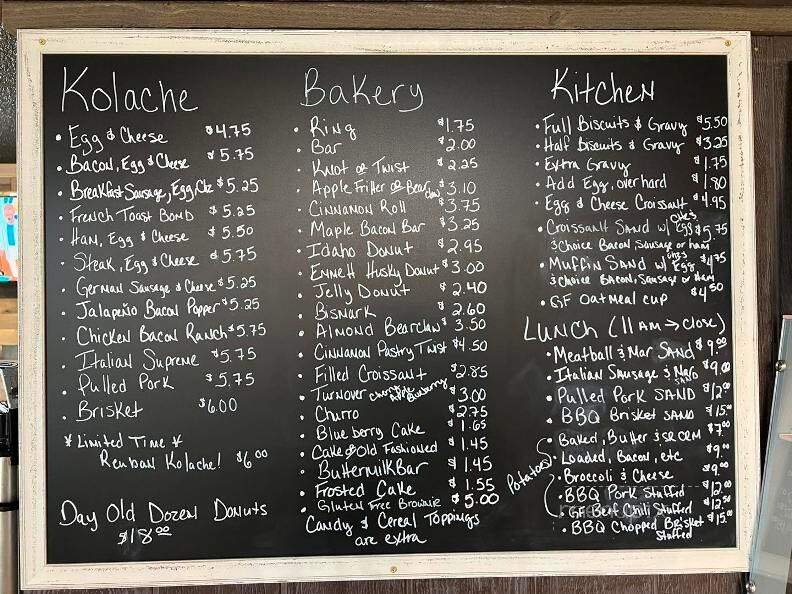 Kolache
• Egg & Cheese $4.75
• Bacon, Egg & Cheese $5.75
• Breakfast Sausage, Egg, Chz $5.25
• French Toast Bomb $5.25
• Ham, Egg & Cheese $5.50
• Steak, Egg & Cheese $5.75
• German Sausage & Cheese $5.25
• Jalapeño Bacon Popper $5.25
• Chicken Bacon Ranch $5.75
• Italian Supreme $5.75
• Pulled Pork $5.75
• Brisket $6.00
* Limited Time *
Reuban Kolache! $6.00
Day Old Dozen Donuts
$18.00
Bakery
• Ring $1.75
• Bar $2.00
• Knot or Twist $2.25
• Apple Fritter or Bear claw $3.10
• Cinnamon Roll $3.75
• Maple Bacon Bar $3.25
• Idaho Donut $2.95
• Emmett Husky Donut $3.00
• Jelly Donut $2.40
• Bsmark $2.60
• Almond Bearclaw $3.50
• Cinnamon Pastry Twist $4.50
• Filled Croissant $2.85
• Turnover Cherry Apple Blueberry $3.00
• Churro $2.75
• Blueberry Cake $1.65
• Cake or Old Fashioned $1.45
• Buttermilk Bar $1.45
• Frosted Cake $1.55
• Gluten Free Brownie $5.00
Candy & Cereal Toppings
are extra
Kitchen
• Full Biscuits & Gravy $5.50
• Half Biscuits & Gravy $3.25
• Extra Gravy $1.75
• Add Egg, over hard $1.80
• Egg & Cheese Croissant $4.95
• Croissant Sand w/ Egg Chz $5.75
& Choice Bacon Sausage or ham
• Muffin Sand w/ Egg Chz $4.75
& Choice Bacon, Sausage or Ham
• GF Oatmeal cup $4.50
Lunch (11 AM → close)
• Meatball & Mar Sand $9.00
• Italian Sausage & Mar Sand $9.00
• Pulled Pork Sand $12.00
• BBQ Brisket Sand $15.00
Potatoes
• Baked, Butter & SR CRM $7.00
• Loaded, Bacon, etc $9.00
• Broccoli & Cheese $9.00
• BBQ Pork Stuffed $12.00
• GF Beef Chili Stuffed $12.50
• BBQ Chopped Brisket $15.00
Stuffed